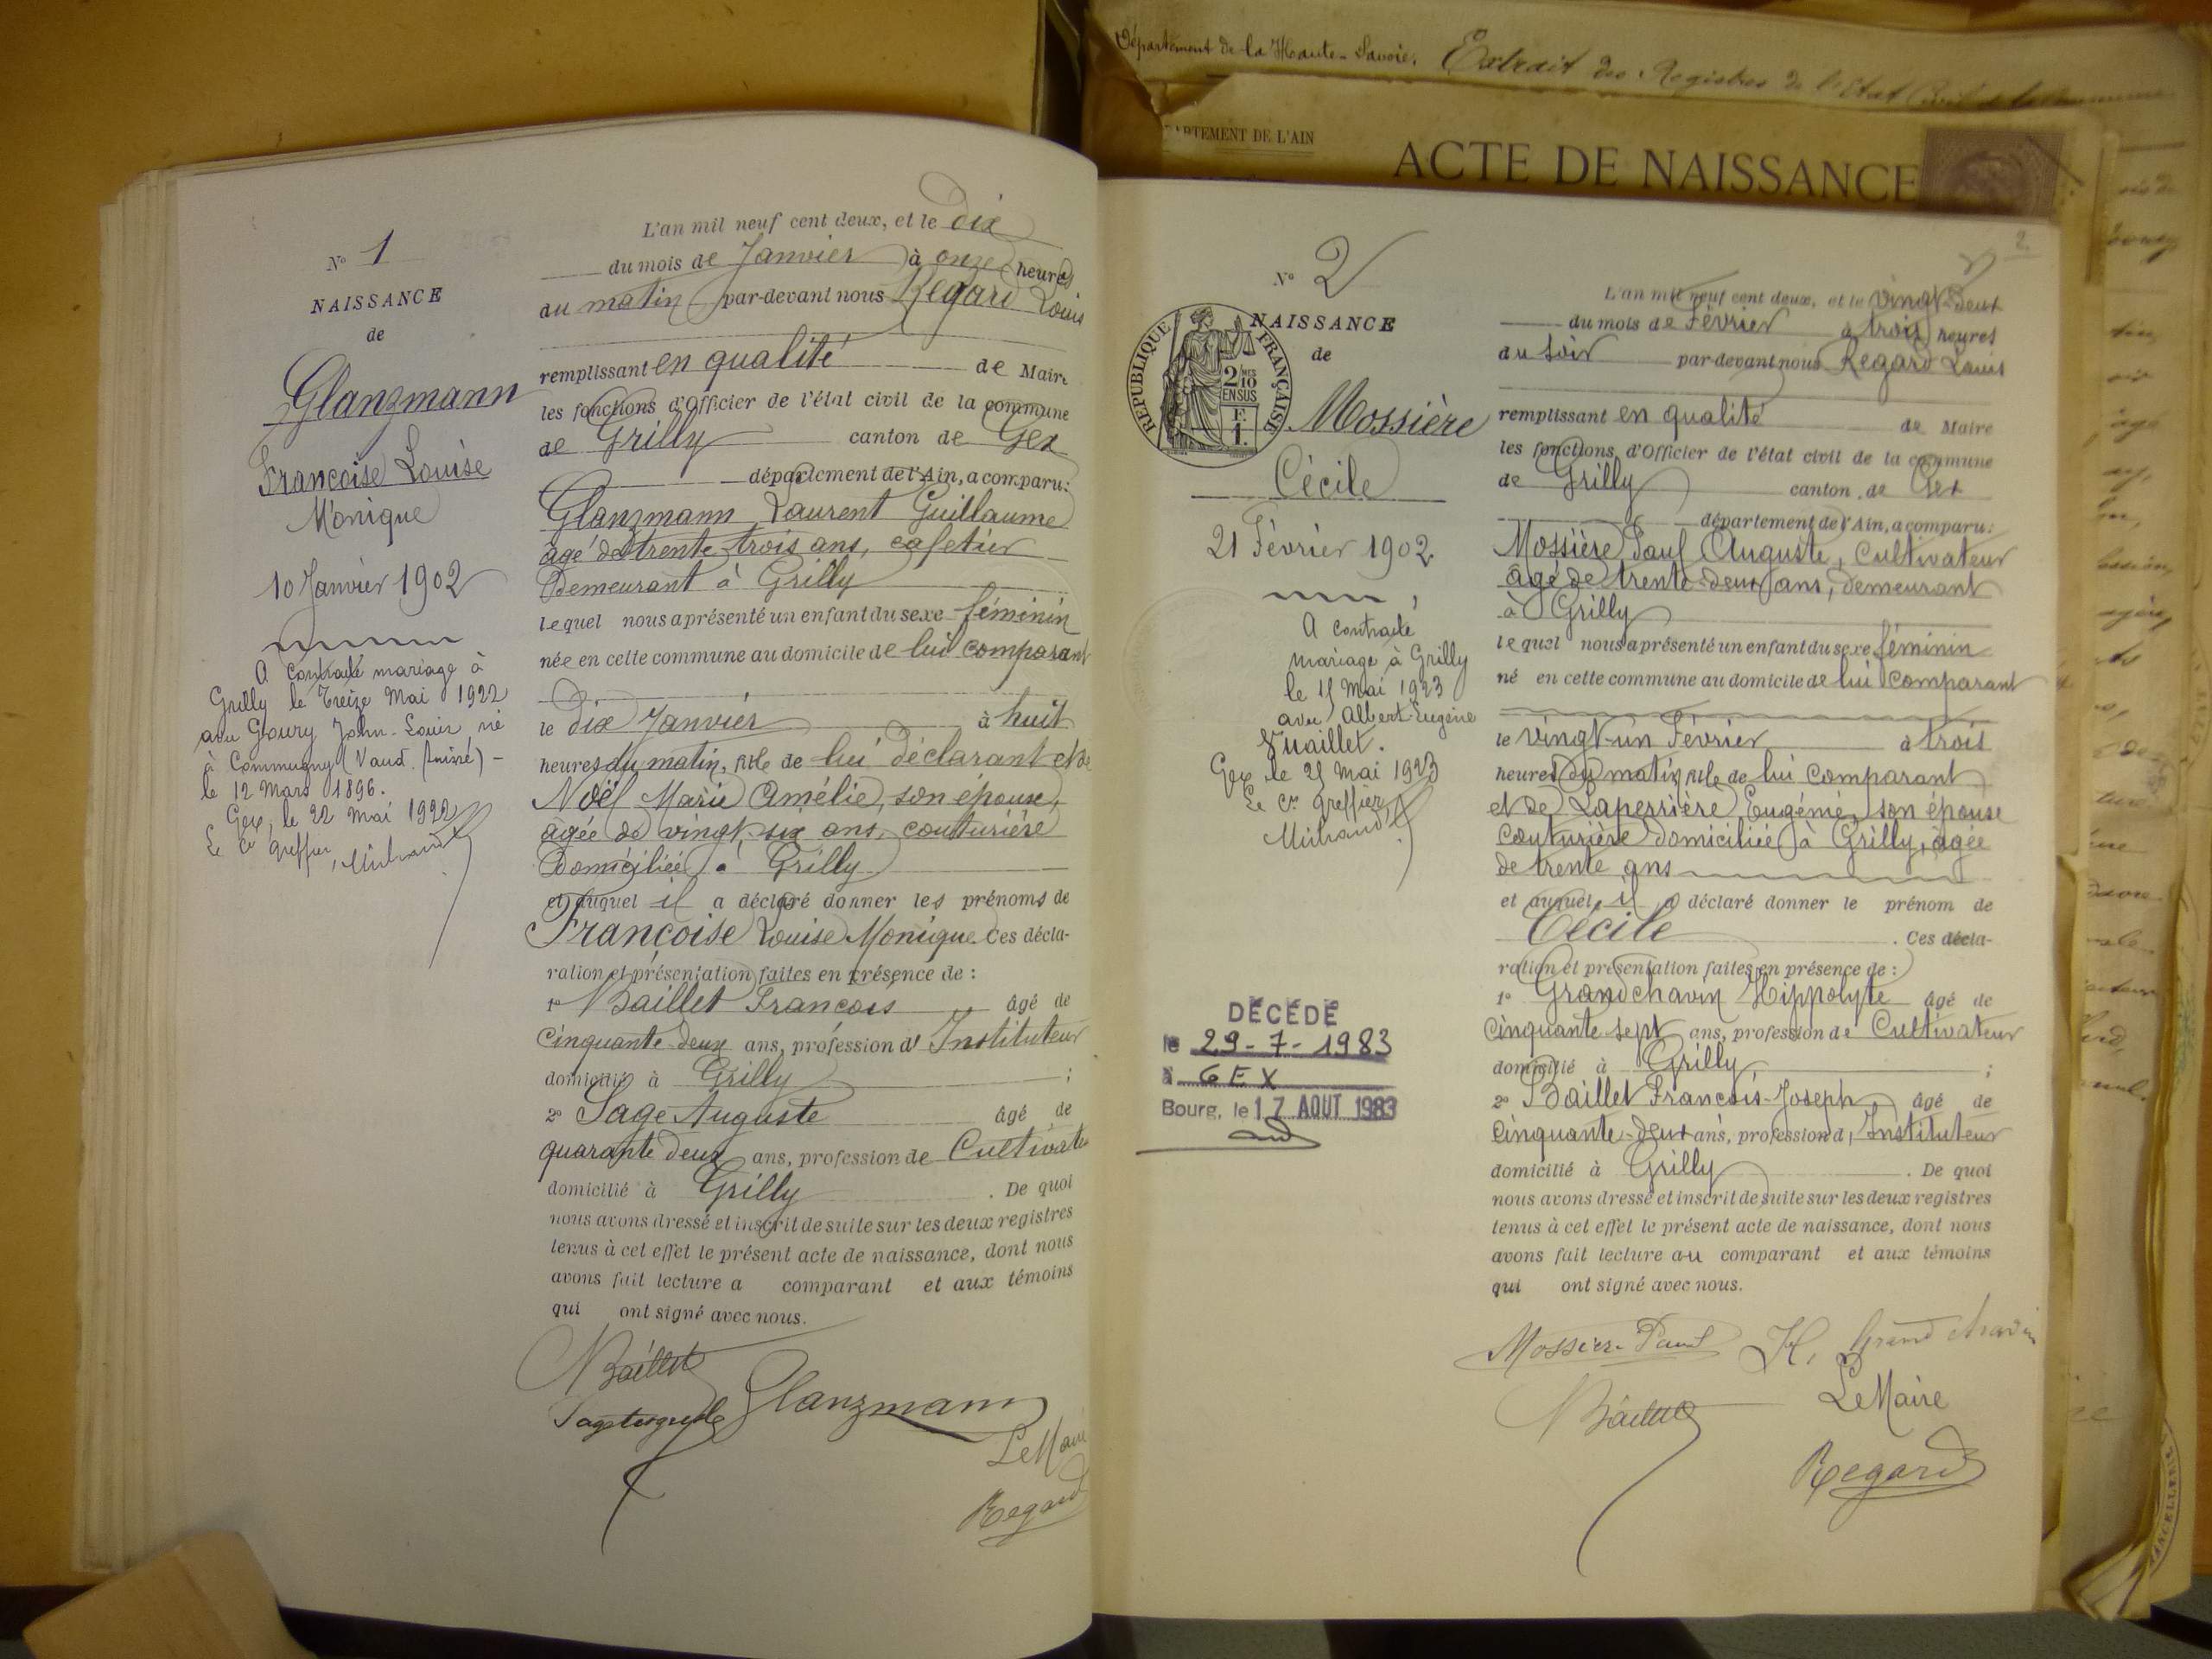 Département de la Haute-Savoie. Extrait des Registres de l'Etat Civil de la
ARTEMENT DE L'AIN
ACTE DE NAISSANCE
N° 1
NAISSANCE
de
Glanzmann
Françoise Louise
Monique
10 Janvier 1902
A contracté mariage à
Grilly le treize Mai 1922
avec Goury John-Louis né
à Commugny (Vaud. Suisse) -
le 12 Mars 1896.
Gex, le 22 Mai 1922
Le Cis greffier,
L'an mil neuf cent deux, et le dix
du mois de Janvier à onze heures
du matin par-devant nous Regard Louis
remplissant en qualité de Maire
les fonctions d'Officier de l'état civil de la commune
de Grilly canton de Gex
département de l'Ain, a comparu:
Glanzmann Laurent Guillaume
âgé de trente trois ans, cafetier
Demeurant à Grilly
lequel nous a présenté un enfant du sexe féminin
née en cette commune au domicile de lui comparant
le dix Janvier à huit
heures du matin, fille de lui déclarant et de
Noël Marie Amélie, son épouse,
âgée de vingt-six ans, couturière
Domiciliée à Grilly
et auquel il a déclaré donner les prénoms de
Françoise Louise Monique. Ces décla-
ration et présentation faites en présence de :
1° Baillet François âgé de
Cinquante-deux ans, profession d' Instituteur
domicilié à Grilly ;
2° Sage Auguste âgé de
quarante deux ans, profession de Cultivate
domicilié à Grilly . De quoi
nous avons dressé et inscrit de suite sur les deux registres
tenus à cet effet le présent acte de naissance, dont nous
avons fait lecture a comparant et aux témoins
qui ont signé avec nous.
Baillet
Glanzmann
Le Maire
Regard
2.
N° 2
RÉPUBLIQUE FRANÇAISE
2 MES
10
EN SUS
F.
1.
NAISSANCE
de
Mossière
Cécile
21 Février 1902
A contracté
mariage à Grilly
le 15 Mai 1923
avec Albert-Eugène
Vuaillet.
Gex le 25 Mai 1923
Le Cis greffier
DÉCÉDÉ
le 29-7-1983
à GEX
Bourg, le 17 AOUT 1983
L'an mil neuf cent deux, et le vingt-deux
du mois de Février à trois heures
du soir par-devant nous Regard Louis
remplissant en qualité de Maire
les fonctions d'Officier de l'état civil de la commune
de Grilly canton de Gex
département de l'Ain, a comparu:
Mossière Paul Auguste, Cultivateur
âgé de trente-deux ans, demeurant
à Grilly
lequel nous a présenté un enfant du sexe féminin
né en cette commune au domicile de lui comparant
le vingt-un Février à trois
heures du matin fille de lui comparant
et de Laperrière Eugénie, son épouse
couturière domiciliée à Grilly, âgée
de trente ans
et auquel il a déclaré donner le prénom de
Cécile . Ces décla-
ration et présentation faites en présence de :
1° Grandchavin Hippolyte âgé de
Cinquante sept ans, profession de Cultivateur
domicilié à Grilly ;
2° Baillet François-Joseph âgé de
Cinquante-deux ans, profession d' Instituteur
domicilié à Grilly . De quoi
nous avons dressé et inscrit de suite sur les deux registres
tenus à cet effet le présent acte de naissance, dont nous
avons fait lecture au comparant et aux témoins
qui ont signé avec nous.
Mossière Paul H. Grandchavin
Baillet
Le Maire
Regard